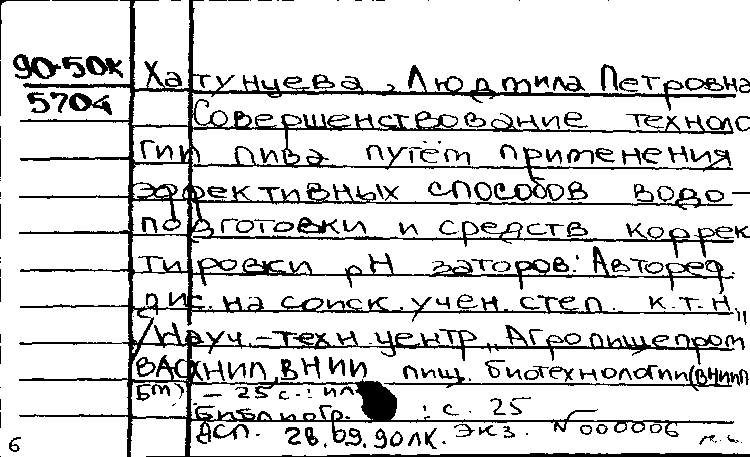 90-50к
5704
Хатунцева, Людмила Петровна
Совершенствование техноло
гии пива путём применения
эффективных способов водо-
подготовки и средств коррек
тировки pH заторов: Автореф.
дис. на соиск. учен. степ. к.т.н.
/Науч.-техн. центр „Агропищепром"
ВАСХНИЛ, ВНИИ пищ. биотехнологии (ВНИИП
БТ) - 25 с.: ил
Библиогр. : с. 25
28.09.90 ЛК. экз. N 000006
6